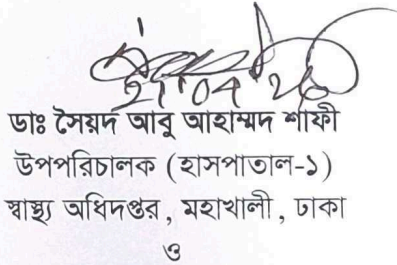 21.04.26
ডাঃ সৈয়দ আবু আহাম্মদ শাফী
উপপরিচালক (হাসপাতাল-১)
স্বাস্থ্য অধিদপ্তর, মহাখালী, ঢাকা
ও